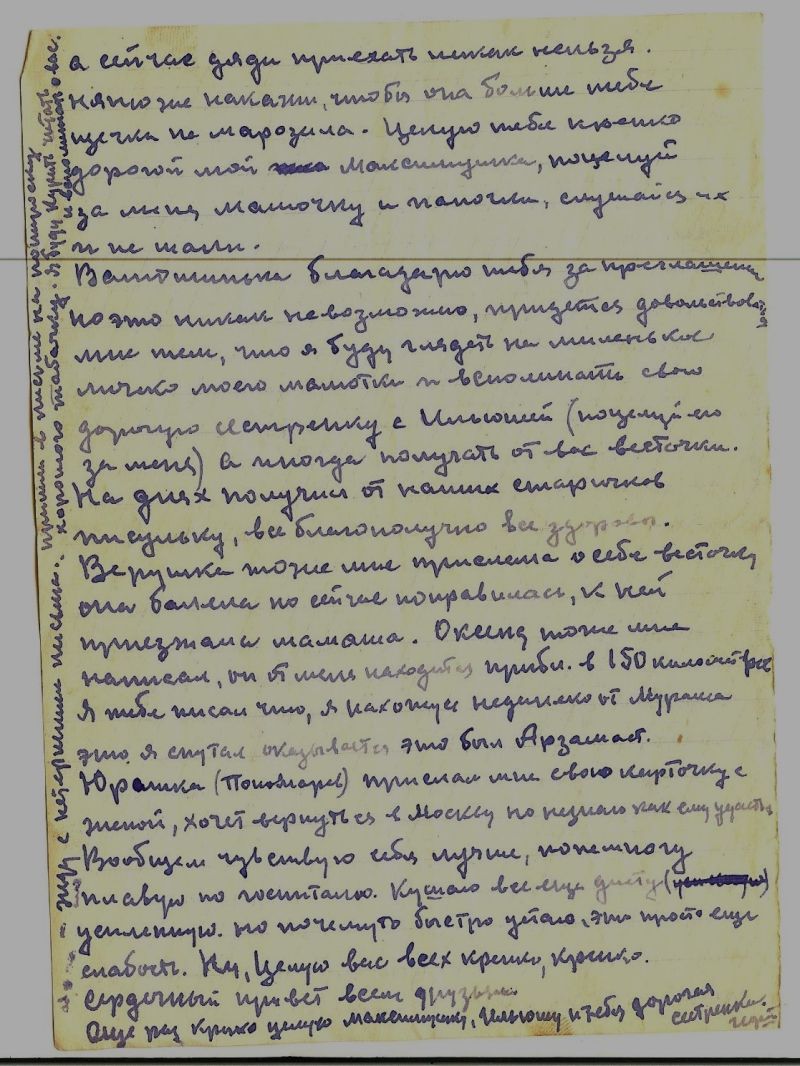 а сейчас дяди приехать никак нельзя.
няню же накажи, чтобы она больше тебе
щечка не марозила. Целую тебя крепко
дорогой мой Максимушка, поцелуй
за меня мамочку и папочки, слушайся их
и не шали.
благадарю тебя за преглашени
но это никак невозможно, придется довольствовать
мне тем, что я буду глядеть на миленькое
личико моего малютки и вспоминать свою
дорогую сестренку с Ильюшей (поцелуй его
за меня) а иногда получать от вас весточки.
На днях получил от наших старичков
писульку, все благополучно все здоровы.
Верушка тоже мне прислала о себе весточку
она балела но сейчас поправилась, к ней
приезжала мамаша. тоже мне
написал, он от меня находится прибл. в 150 километрах
Я тебе писал что, я нахожусь недалеко от Мурома
это я спутал оказывается это был Арзамаст.
Юрашка (Пономарев) прислал мне свою карточку с
женой, хочет вернуться в Москву но незнаю как ему удасться
Вообщем чувствую себя лучше, понемногу
плаваю по госпиталю. Кушаю все еще диету
усиленную. но почемуто быстро устаю, это просто еще
слабость. Ну, Целую вас всех крепко, крепко.
Сердечный привет всем друзьям
Еще раз крепко целую Максимушку, Ильюшу и тебя дорогая
сестренка.
жду с нетерпением письма. пришли в письме на папироску
хорошого табачку. Я буду курить читать
и вспоминать о вас.